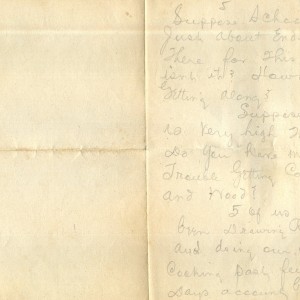 5
Suppose Scho
Just about End
There for This
isnt it? How
Getting along?
Suppose
is Very high T
Do You have m
Trouble Getting Co
and Wood?
5 of us
ben Sewing
and doing our
Cooking
Days account